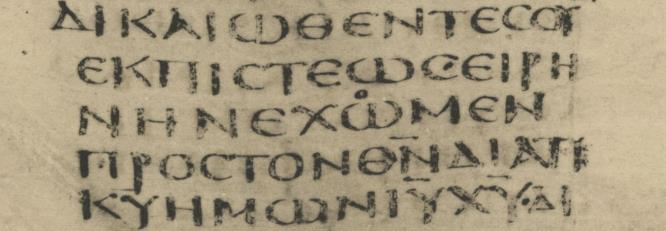 ΔΙΚΑΙΩΘΕΝΤΕϹΟΥ
ΕΚΠΙϹΤΕΩϹΕΙΡΗ
ΝΗΝΕΧΩͦΜΕΝ
ΠΡΟϹΤΟΝΘΝ̅ΔΙΑΤ
ΚΥΗΜΩΝΙΥ̅ΧΥ̅·ΔΙ